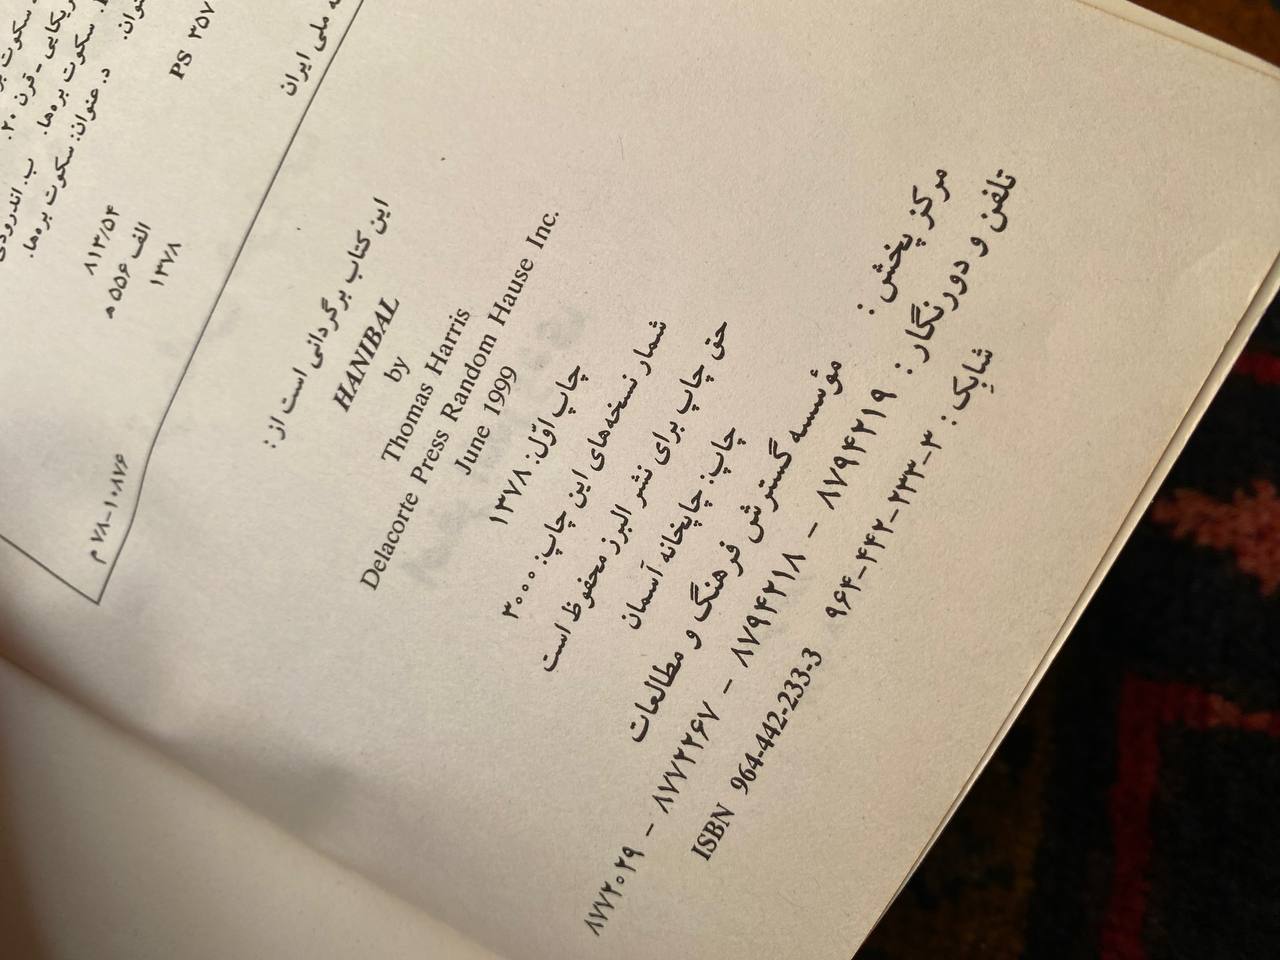 سکوت
ریکایی - قرن ۲۰.
سکوت بره‌ها. ب. اندرودی
عنوان. د. عنوان: سکوت بره‌ها.
PS ۳۵۷
۸۱۳/۵۴
الف ۵۵۶ ه
۱۳۷۸
ملی ایران
م ۷۸-۱۰۸۷۶
این کتاب برگردانی است از:
HANIBAL
by
Thomas Harris
Delacorte Press Random Hause Inc.
June 1999
چاپ اوّل: ۱۳۷۸
شمار نسخه‌های این چاپ: ۳۰۰۰
حق چاپ برای نشر البرز محفوظ است
چاپ: چاپخانه آسمان
مرکز پخش: مؤسسه گسترش فرهنگ و مطالعات
تلفن و دورنگار: ۸۷۹۴۲۱۹ – ۸۷۹۴۲۱۸ – ۸۷۷۲۲۶۷ – ۸۷۷۲۰۲۹
شابک: ۳-۲۳۳-۴۴۲-۹۶۴ ISBN 964-442-233-3